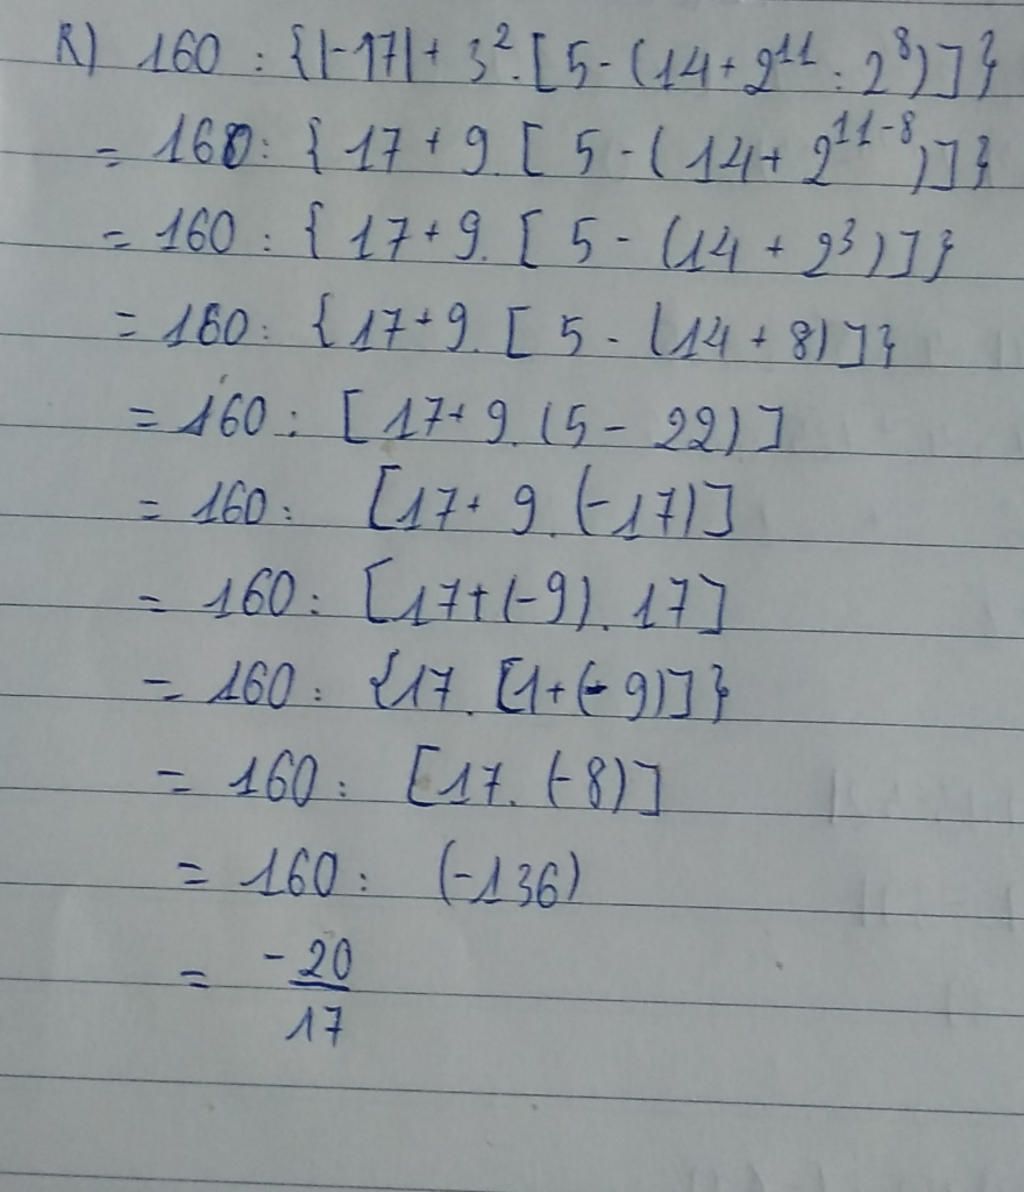 k) 160 : {|-17| + 3². [5 - (14 + 2¹¹ : 2⁸)]}
= 160 : {17 + 9. [5 - (14 + 2¹¹⁻⁸)]}
= 160 : {17 + 9. [5 - (14 + 2³)]}
= 160 : {17 + 9. [5 - (14 + 8)]}
= 160 : [17 + 9. (5 - 22)]
= 160 : [17 + 9. (-17)]
= 160 : [17 + (-9). 17]
= 160 : {17. [1 + (-9)]}
= 160 : [17. (-8)]
= 160 : (-136)
= -20
17